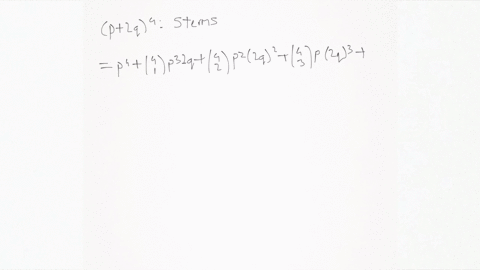 (p+2q)⁴: 5terms
= p⁴ + (4 1) p³2q + (4 2) p²(2q)² + (4 3) p(2q)³ +